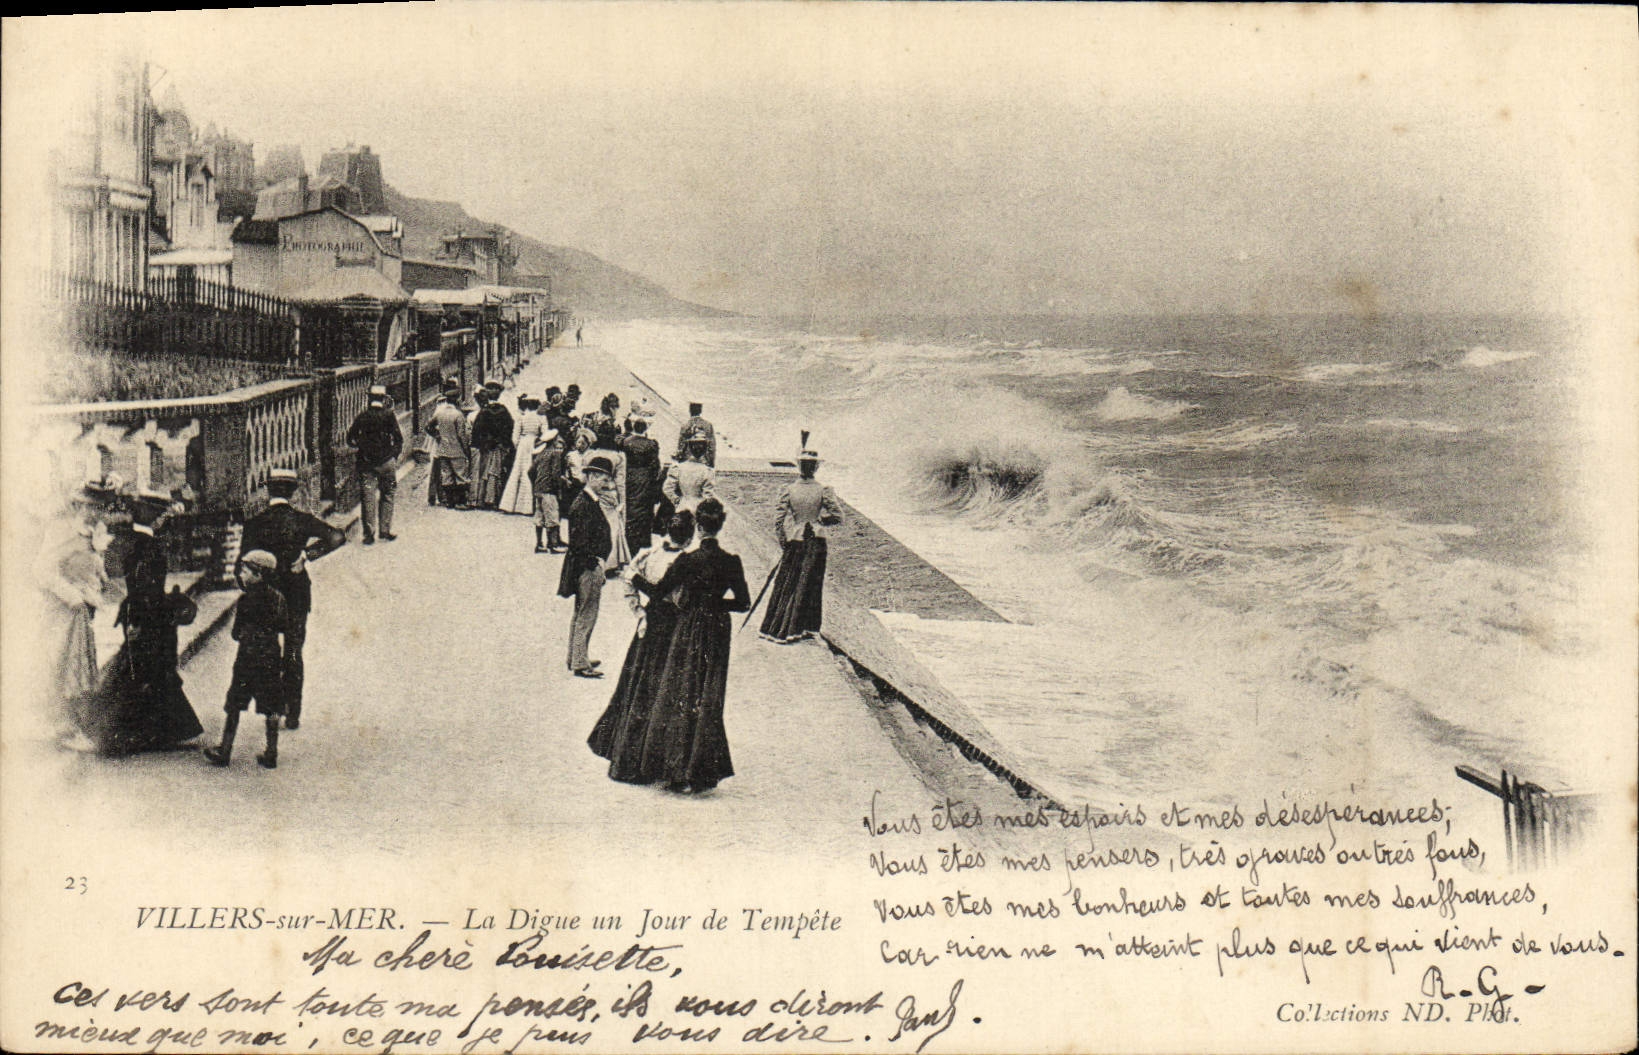 PHOTOGRAPHIE
Vous êtes mes espoirs et mes désespérances;
Vous êtes mes pensers, très graves ou très fous,
Vous êtes mes bonheurs et toutes mes souffrances,
Car rien ne m'atteint plus que ce qui vient de vous.
R. G -
23
VILLERS-sur-MER. — La Digue un Jour de Tempête
Collections ND. Phot.
Ma chère Louisette,
Ces vers sont toute ma pensée, ils vous diront
mieux que moi, ce que je puis vous dire. Paul.